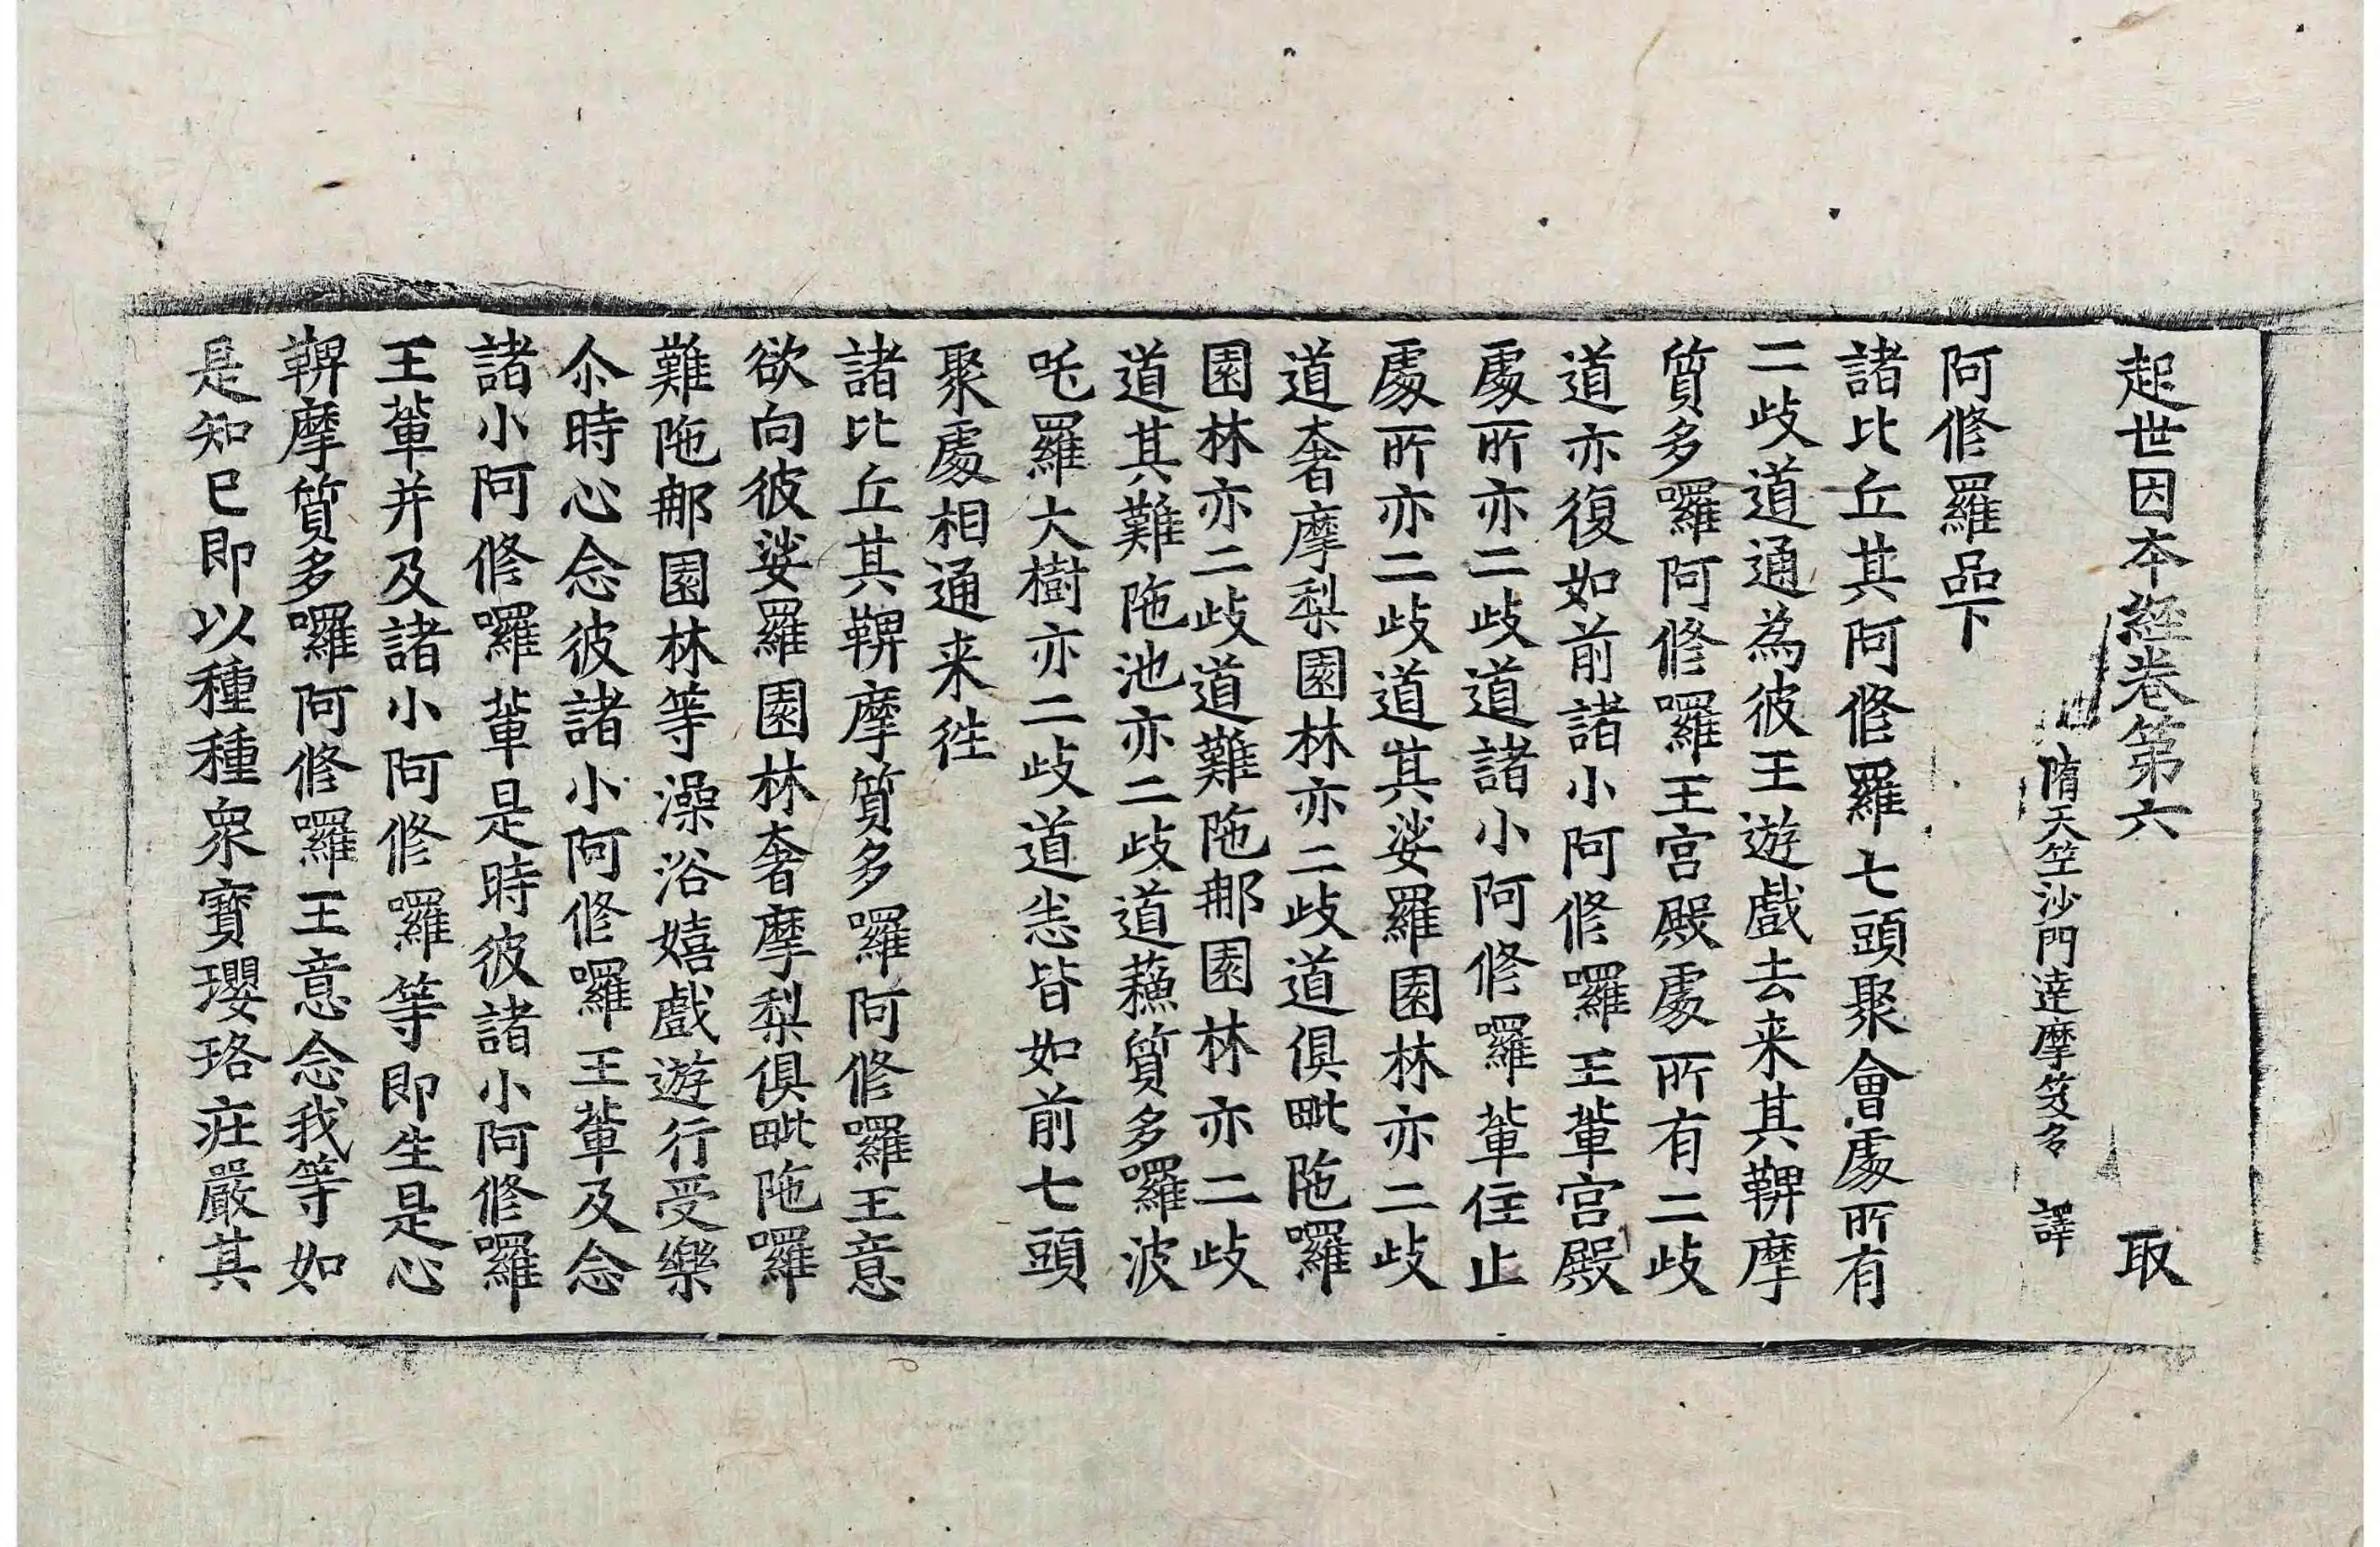 起世因本經卷第六 取
隋天竺沙門達摩笈多 譯
阿修羅品下
諸比丘其阿修羅七頭聚會處所有
二歧道通為彼王遊戲去来其鞞摩
質多囉阿修囉王宮殿處所有二歧
道亦復如前諸小阿修囉王輩宮殿
處所亦二歧道諸小阿修囉輩住止
處所亦二歧道其娑羅園林亦二歧
道奢摩梨園林亦二歧道俱毗陁囉
園林亦二歧道難陁那園林亦二歧
道其難陁池亦二歧道蘓質多囉波
吒羅大樹亦二歧道悉皆如前七頭
聚處相通来徃
諸比丘其鞞摩質多囉阿修囉王意
欲向彼娑羅園林奢摩梨俱毗陁囉
難陁那園林等澡浴嬉戲遊行受樂
尒時心念彼諸小阿修囉王輩及念
諸小阿修囉輩是時彼諸小阿修囉
王輩并及諸小阿修囉等即生是心
鞞摩質多囉阿修囉王意念我等如
是知已即以種種衆寶瓔珞庄嚴其